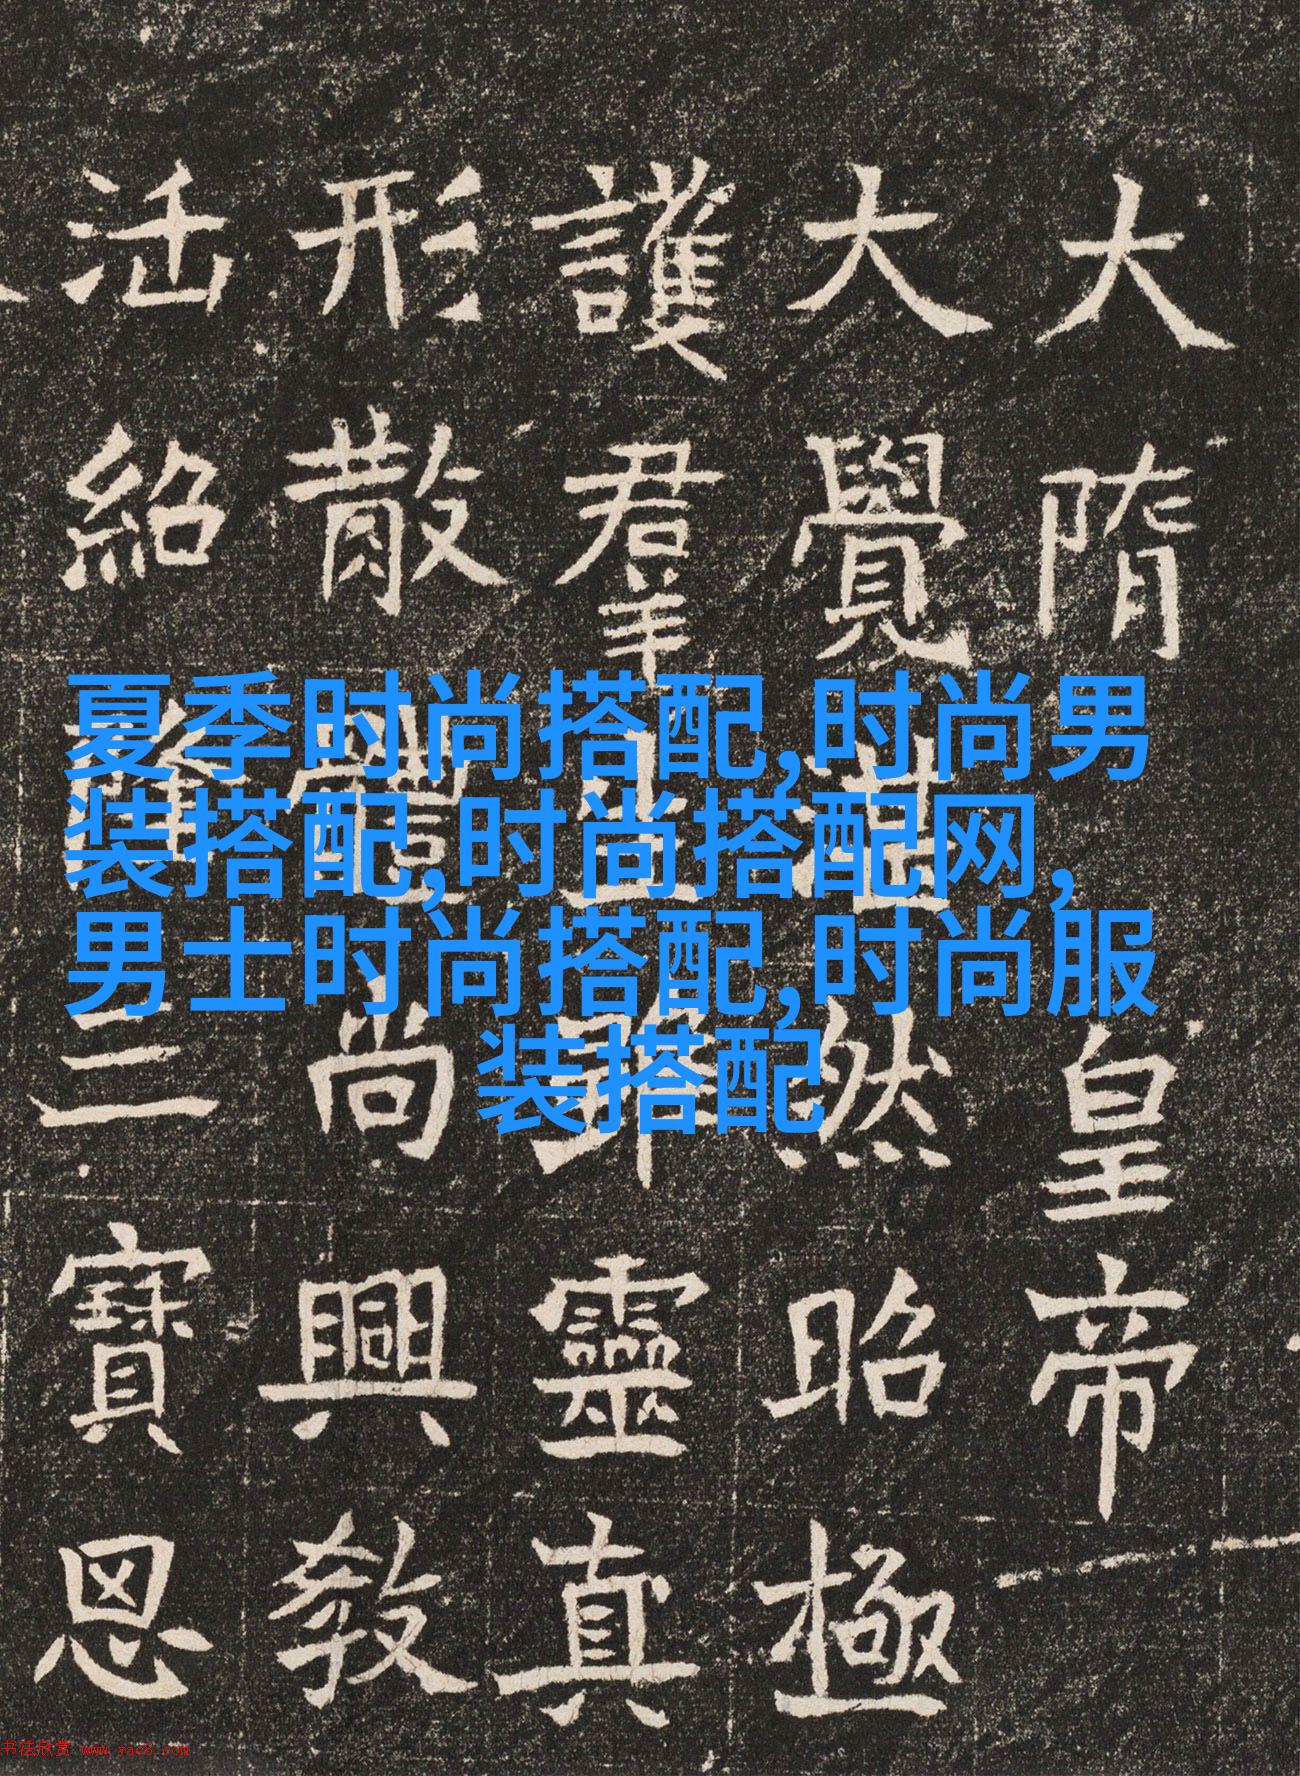 大隋皇帝
大覺湛然昭極
護群生靈真
形散體尚興教
活紹隆三寶恩
夏季时尚搭配,时尚男
装搭配,时尚搭配网,
男士时尚搭配,时尚服
装搭配
书法欣赏 www.yac8.com